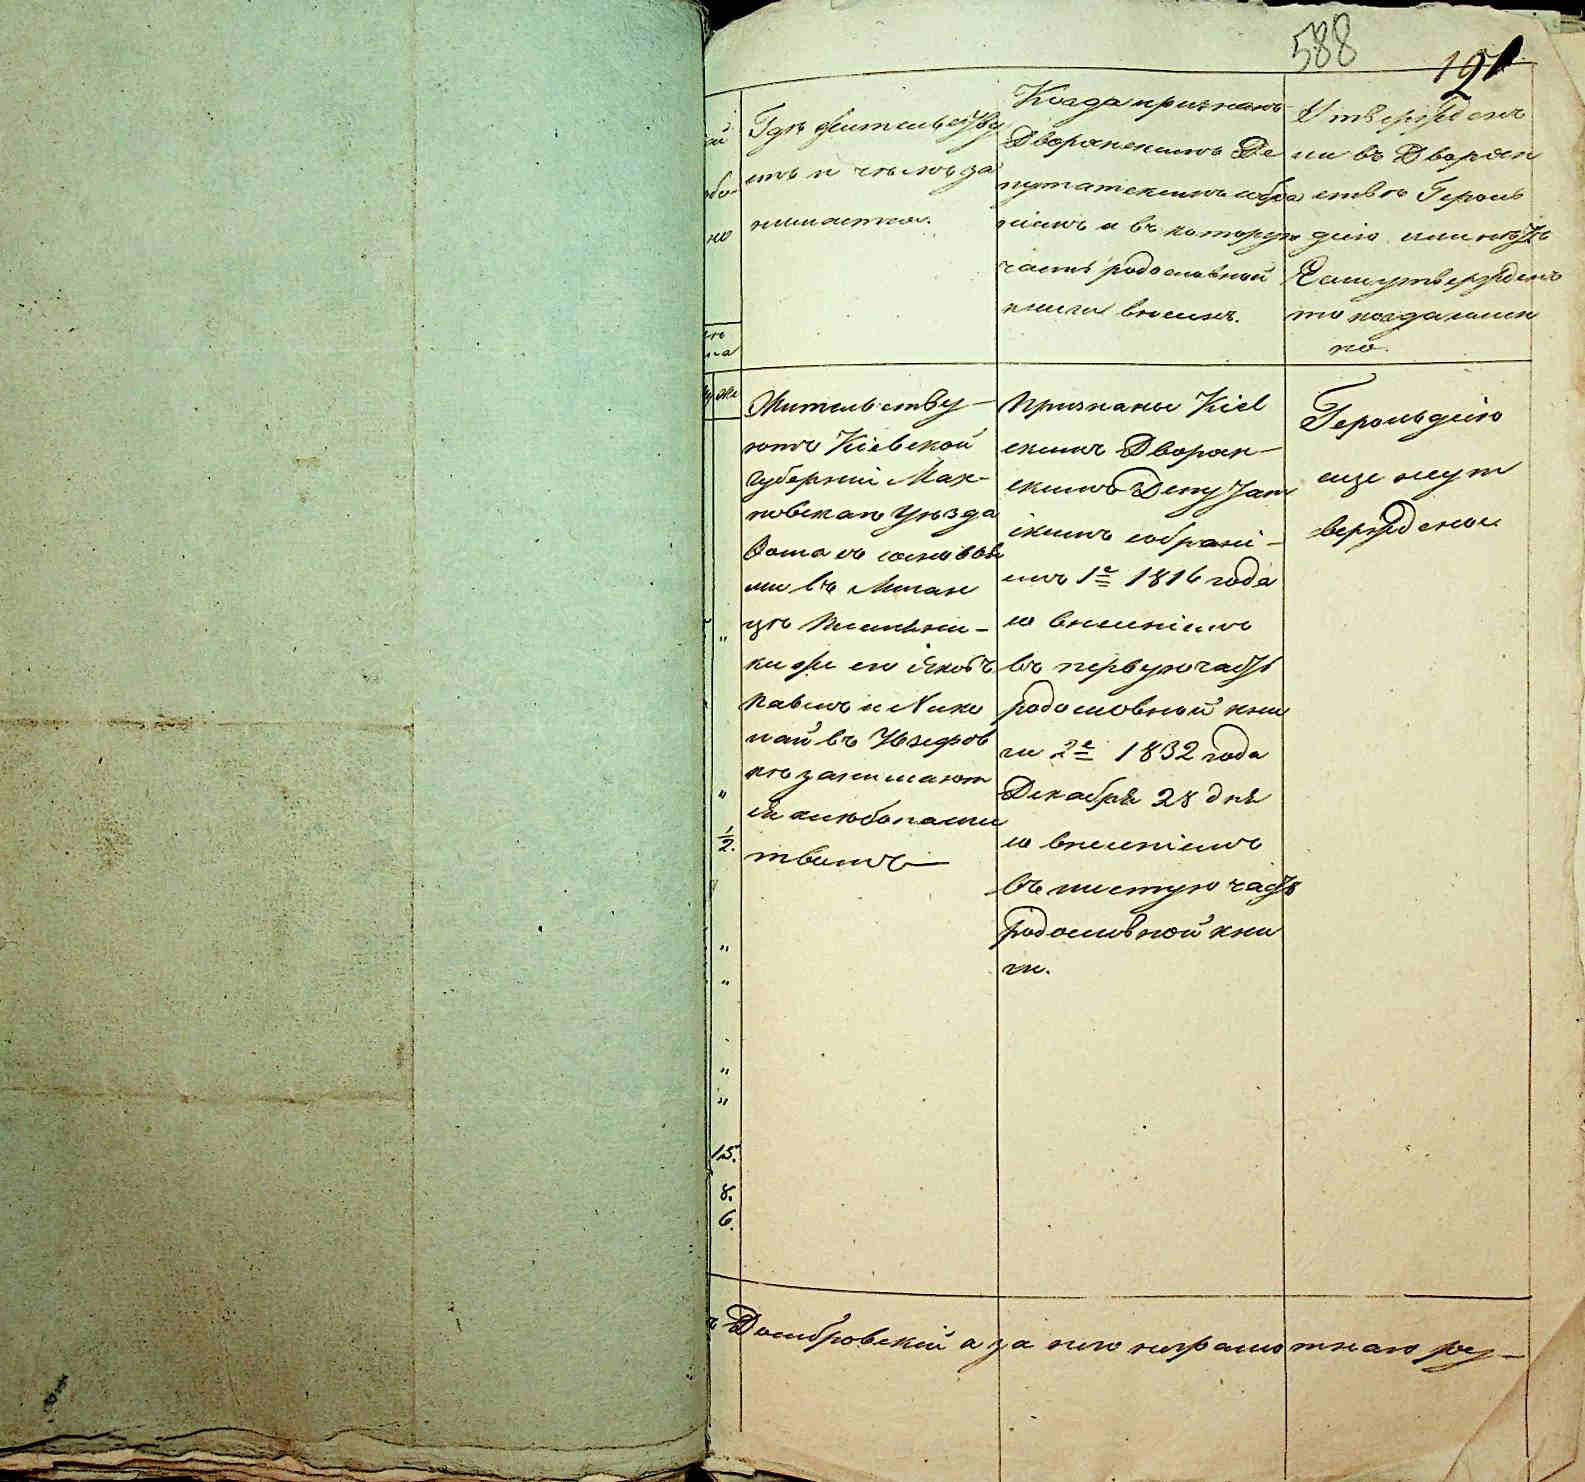 588
121
Гдѣ жительству
етъ и чѣмъ за
нимается.
Когда признанъ
Дворянскимъ Де
путатскимъ собра
ніемъ и въ которую
часть родословной
книги внесенъ.
Утвержденъ
ли въ Дворян
ствѣ Героль
діею или нѣтъ
Если утвержденъ
то когда имен
но.
Жительству
ютъ Кіевской
Губерніи
Уѣзда
Ѳома съ сыновья
ми въ
же его Яковъ
Павелъ и Нико
лай въ
кѣ занимают
ся хлебопаше
ствомъ
Признаны Кіев
скимъ Дворян
скимъ Депутат
скимъ собрані
емъ 1е 1816 года
со внесеніемъ
въ первую часть
родословной кни
ги 2е 1832 года
Декабря 28 дня
со внесеніемъ
въ шестую часть
родословной кни
ги.
Герольдіею
еще неут
верждены
1/2.
15.
8.
6.
Домбровскій а за него неграмотнаго ру